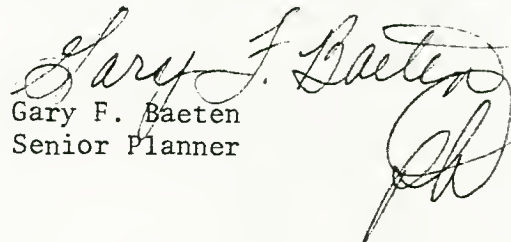 Gary F. Baeten
Gary F. Baeten
Senior Planner